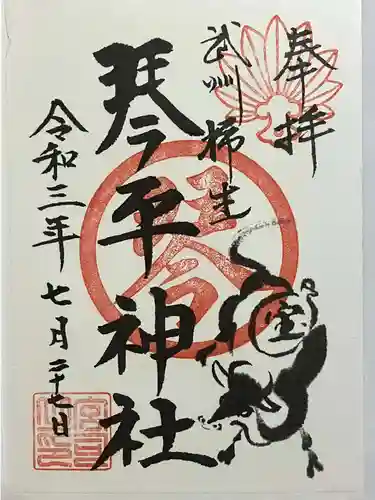 奉拝
武州 柿生
琴平神社
令和三年 七月二十七日
宝